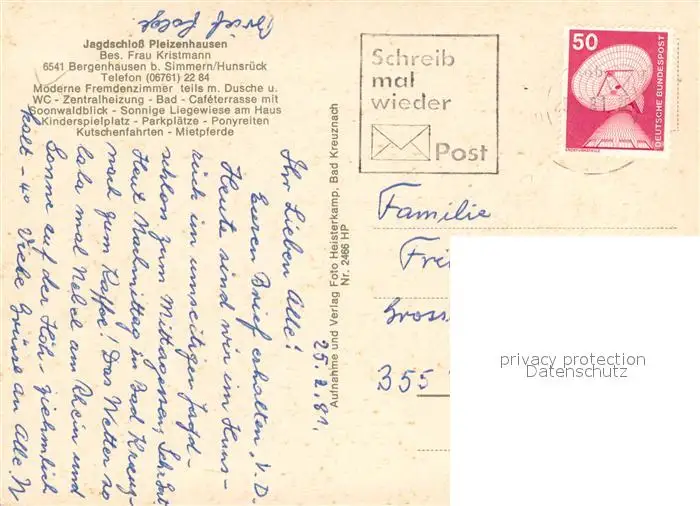 Brief folgt
Jagdschloß Pleizenhausen
Bes. Frau Kristmann
6541 Bergenhausen b. Simmern/Hunsrück
Telefon (06761) 22 84
Moderne Fremdenzimmer teils m. Dusche u.
WC - Zentralheizung - Bad - Caféterrasse mit
Soonwaldblick - Sonnige Liegewiese am Haus
Kinderspielplatz - Parkplätze - Ponyreiten
Kutschenfahrten - Mietpferde
25.2.81.
Ihr Lieben Alle!
Euren Brief erhalten, V. D.
Heute sind wir im Huns-
rück im umseitigen Jagd-
schloss zum Mittagessen, Sehr gut
Heut Nachmittag in Bad Kreuz-
nach zum Kaffee! Das Wetter so
lala mal Nebel am Rhein und
Sonne auf der Höh- ziehmlich
kalt - 4° Viele Grüsse an Alle. N
Aufnahme und Verlag Foto Heisterkamp, Bad Kreuznach
Nr. 2466 HP
Schreib
mal
wieder
Post
50
DEUTSCHE BUNDESPOST
ERDEFUNKSTELLE
Familie
Fri
Gross
355
privacy protection
Datenschutz